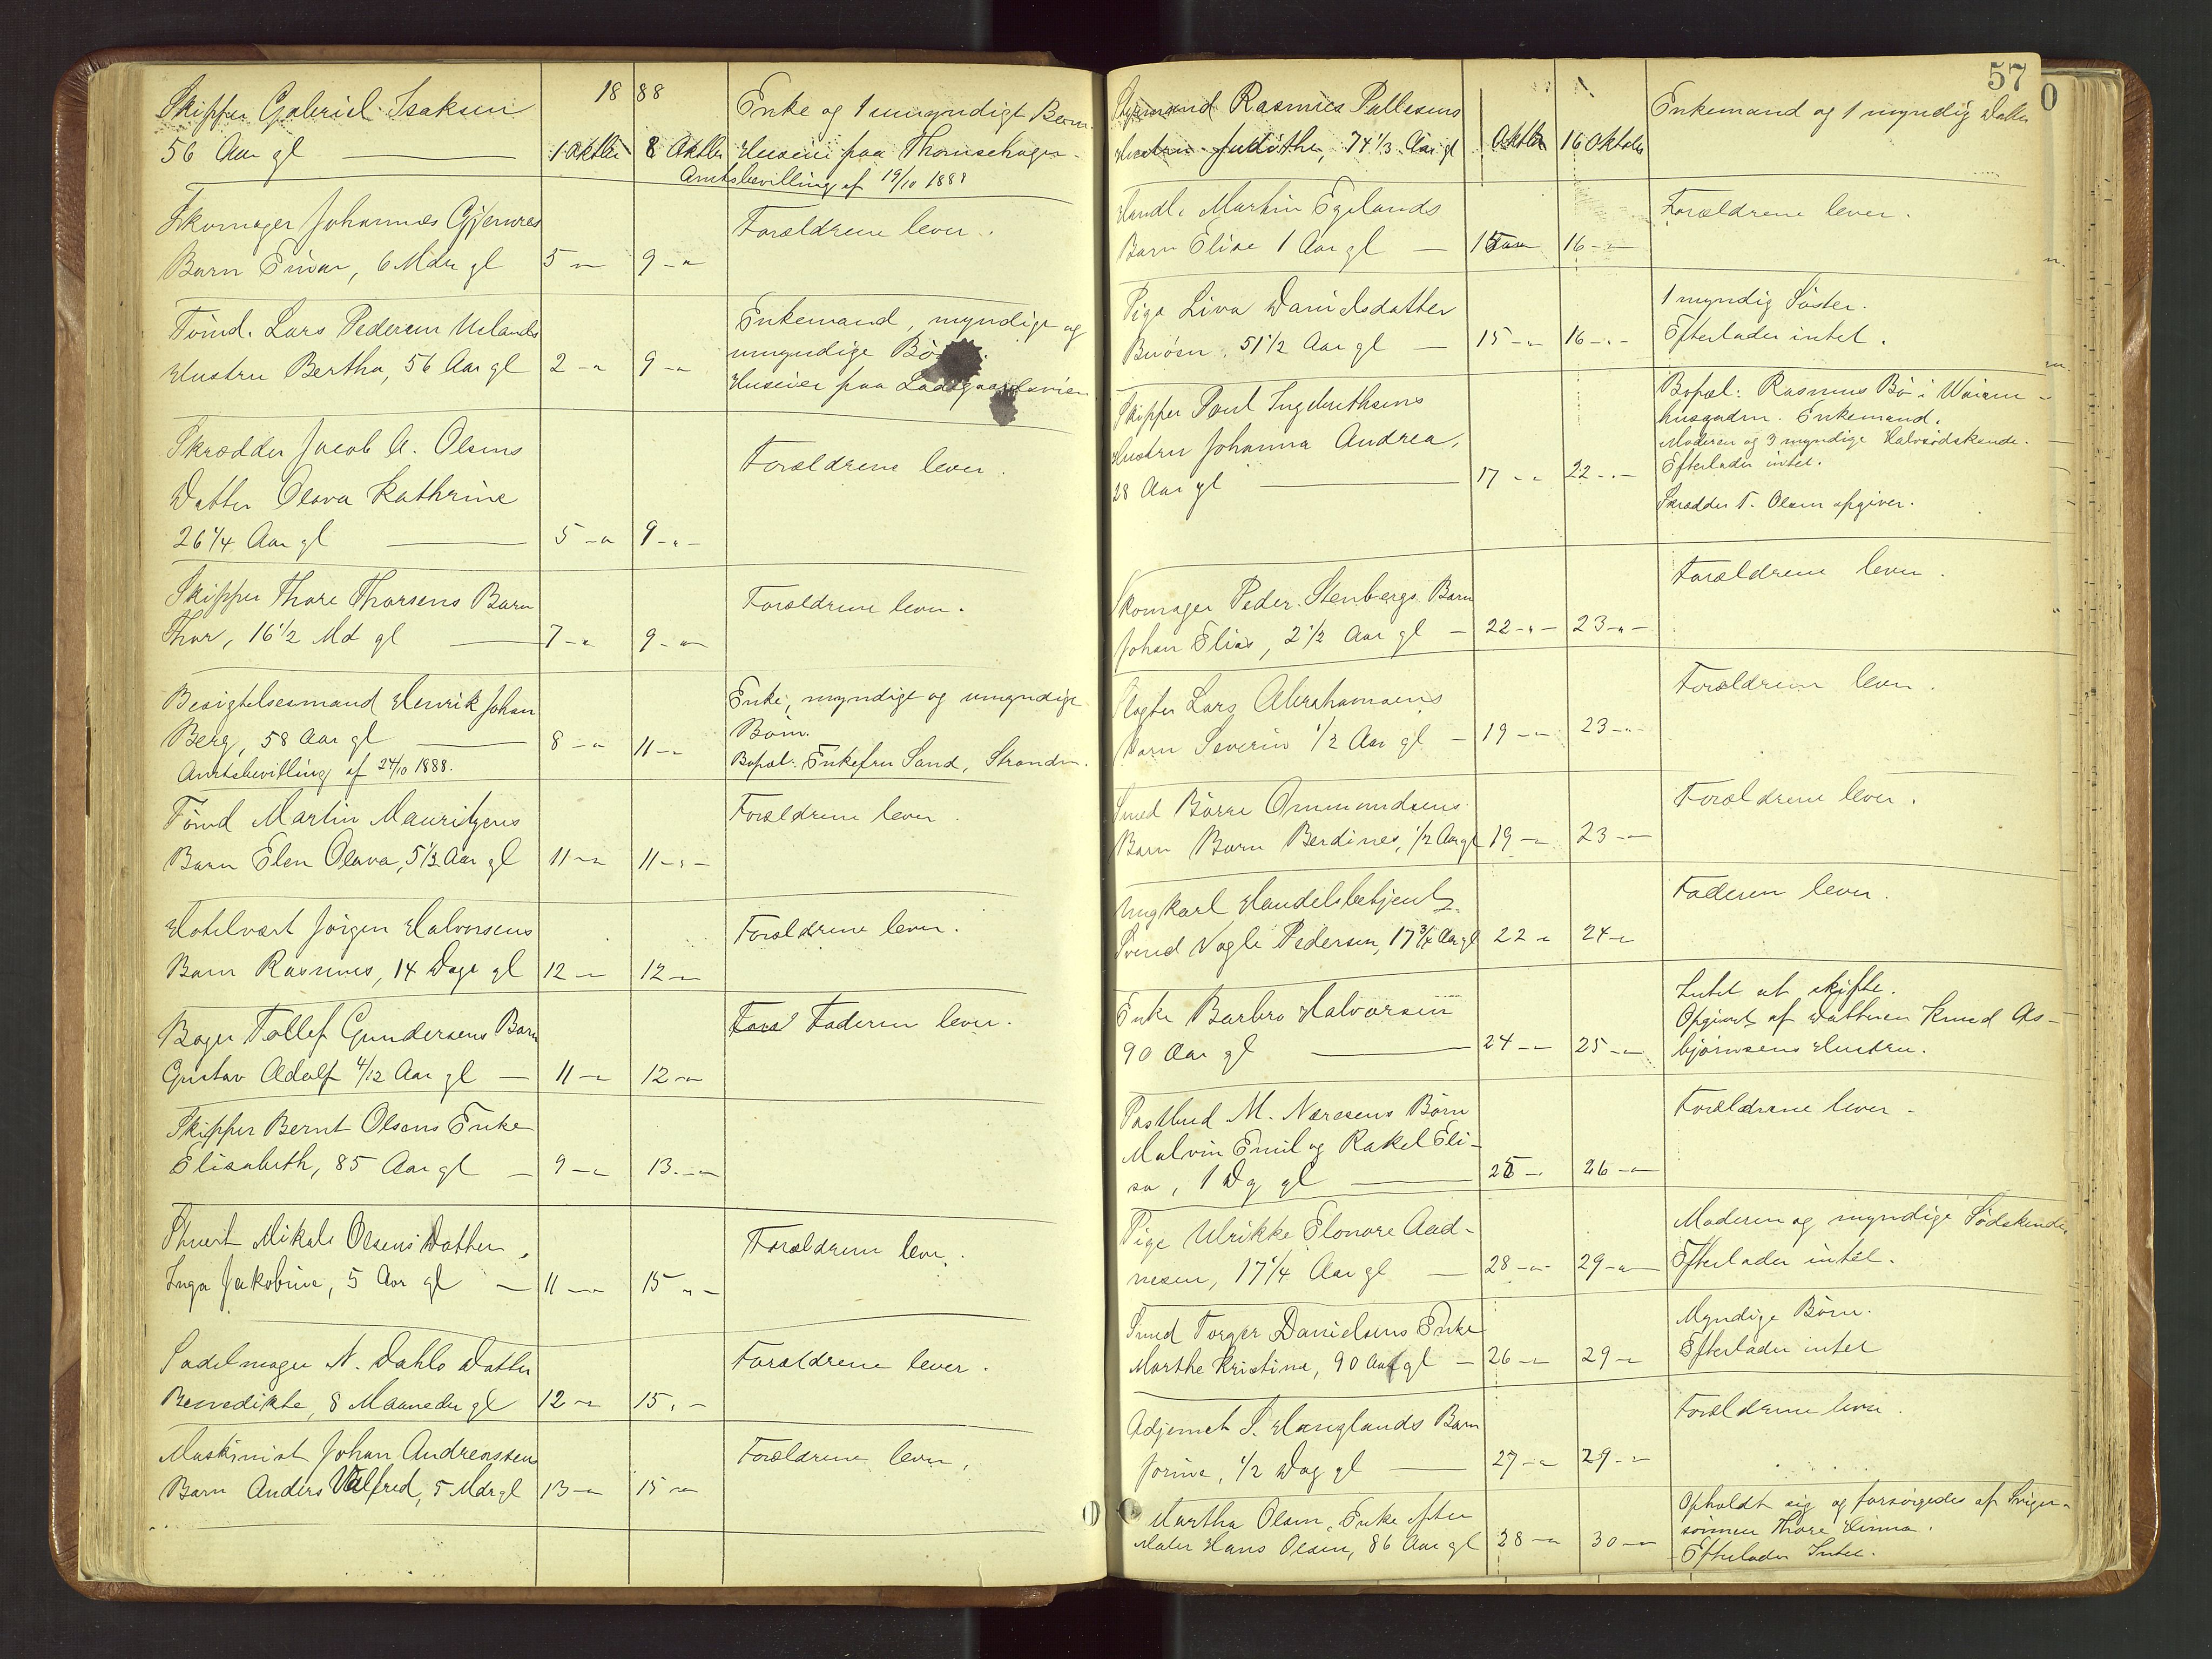 18 88
Skipper Gabriel Isaksen
56 Aar gl
1 Oktbr 8 Oktbr
Enke og 1 umyndigt Barn.
Huseier paa
Amtsbevilling af 19/10 1888
Skomager Johannes
Barn Einar, 6 Mdr gl
5 - " 9 - "
Forældrene lever.
Tømd. Lars Pedersen
Hustru Bertha, 56 Aar gl
2 - " 9 - "
Enkemand, myndige og
umyndige
Huseier paa
Skrædder Jacob A. Olsens
Datter Olava Kathrine
26 1/4 Aar gl
5 - " 9 - " -
Forældrene lever.
Skipper Thore Thorsens Barn
Thor, 16 1/2 Md gl
7 - " 9 - "
Forældrene lever.
Besigtelsesmand Henrik Johan
Berg, 58 Aar gl
Amtsbevilling af 24/10 1888.
8 - " 11 - "
Enke, myndige og umyndige
Børn.
Bopæl: Enkefru Sand, Stranden.
Tømd Martin Mauritzens
Barn Elen Olava, 5 1/3 Aar gl
11 - " 11 - " -
Forældrene lever.
Hotelvært Jørgen Halvorsens
Barn Rasmus, 14 Dage gl
12 - " 12 - "
Forældrene lever.
Bager Tollef Gundersens Barn
Gustav Adolf 4/12 Aar gl
11 - " 12 - "
Faderen lever.
Skipper Bernt Olsens Enke
Elisabeth, 85 Aar gl
9 - " 13 - "
Stuert Mikal Olsens Datter
Inga Jakobine, 5 Aar gl
11 - " 15 - " -
Forældrene lever.
Sadelmager N. Dahls Datter
Benedikte, 8 Maaneder gl
12 - " 15 " -
Forældrene lever.
Maskinist Johan Andreassens
Barn Anders Valfred, 5 Mdr gl
13 - " 15 - "
Forældrene lever.
57
Styrmand Rasmus Pallesens
Hustru Judithe, 74 1/3 Aar gl
Oktbr 16 Oktober
Enkemand og 1 myndig Datter
Handl. Martin Egelands
Barn Elise 1 Aar gl
15 16 - "
Forældrene lever.
Pige Liva Danielsdatter
51 1/2 Aar gl
15 - " 16 - " -
1 myndig Søster.
Efterlader intet.
Skipper Poul Ingebrethsens
Hustru Johanna Andrea,
28 Aar gl
17 - " 22 - " -
Bopæl: Rasmus Bø i
Enkemand.
Moderen og 3 myndige Halvsødskende.
Efterlader intet.
Skrædder T. Olsen opgiver.
Skomager Peder Stenbergs Barn
Johan Elias, 2 1/2 Aar gl
22 - " - 23 - " -
Forældrene lever.
Slagter Lars Abrahamsens
Barn Severin 1/2 Aar gl
19 - " 23 - " -
Forældrene lever.
Smed Børre Ommundsens
Barn Barn Berdines, 1/2 Aar gl
19 - " 23 - "
Forældrene lever.
Ungkarl Handelsbetjent
Svend Vagle Pedersen, 17 3/4 Aar gl
22 " 24 - "
Faderen lever.
Enke Barbro Halvorsen
90 Aar gl
24 - " 25 - "
Intet at skifte.
Opgivet af Datteren Knud As-
bjørnsens Hustru.
Postbud M. Næresens Børn
Malvin Emil og Rakel Eli-
sa, 1 Dg gl
25 - " 26 - "
Forældrene lever.
Pige Ulrikke Elonore Aad-
nesen, 17 1/4 Aar gl
28 - " 29 - "
Moderen og myndige Sødskende.
Efterlader intet.
Smed Torger Danielsens Enke
Marthe Kristine, 90 Aar gl
26 - " 29 - "
Myndige Børn.
Efterlader intet
Adjunct S. Hauglands Barn
Jorine, 1/2 Dag gl
27 - " 29 - "
Forældrene lever.
Martha Olsen, Enke efter
Maler Hans Olsen, 86 Aar gl
28 - " 30 - "
Opholdt sig og forsørgedes af Sviger-
sønnen Thore Hinna.
Efterlader Intet.